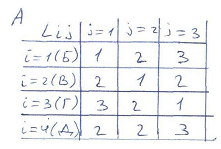 А
Lij j=1 j=2 j=3
i=1(Б) 1 2 3
i=2(В) 2 1 2
i=3(Г) 3 2 1
i=4(Д) 2 2 3